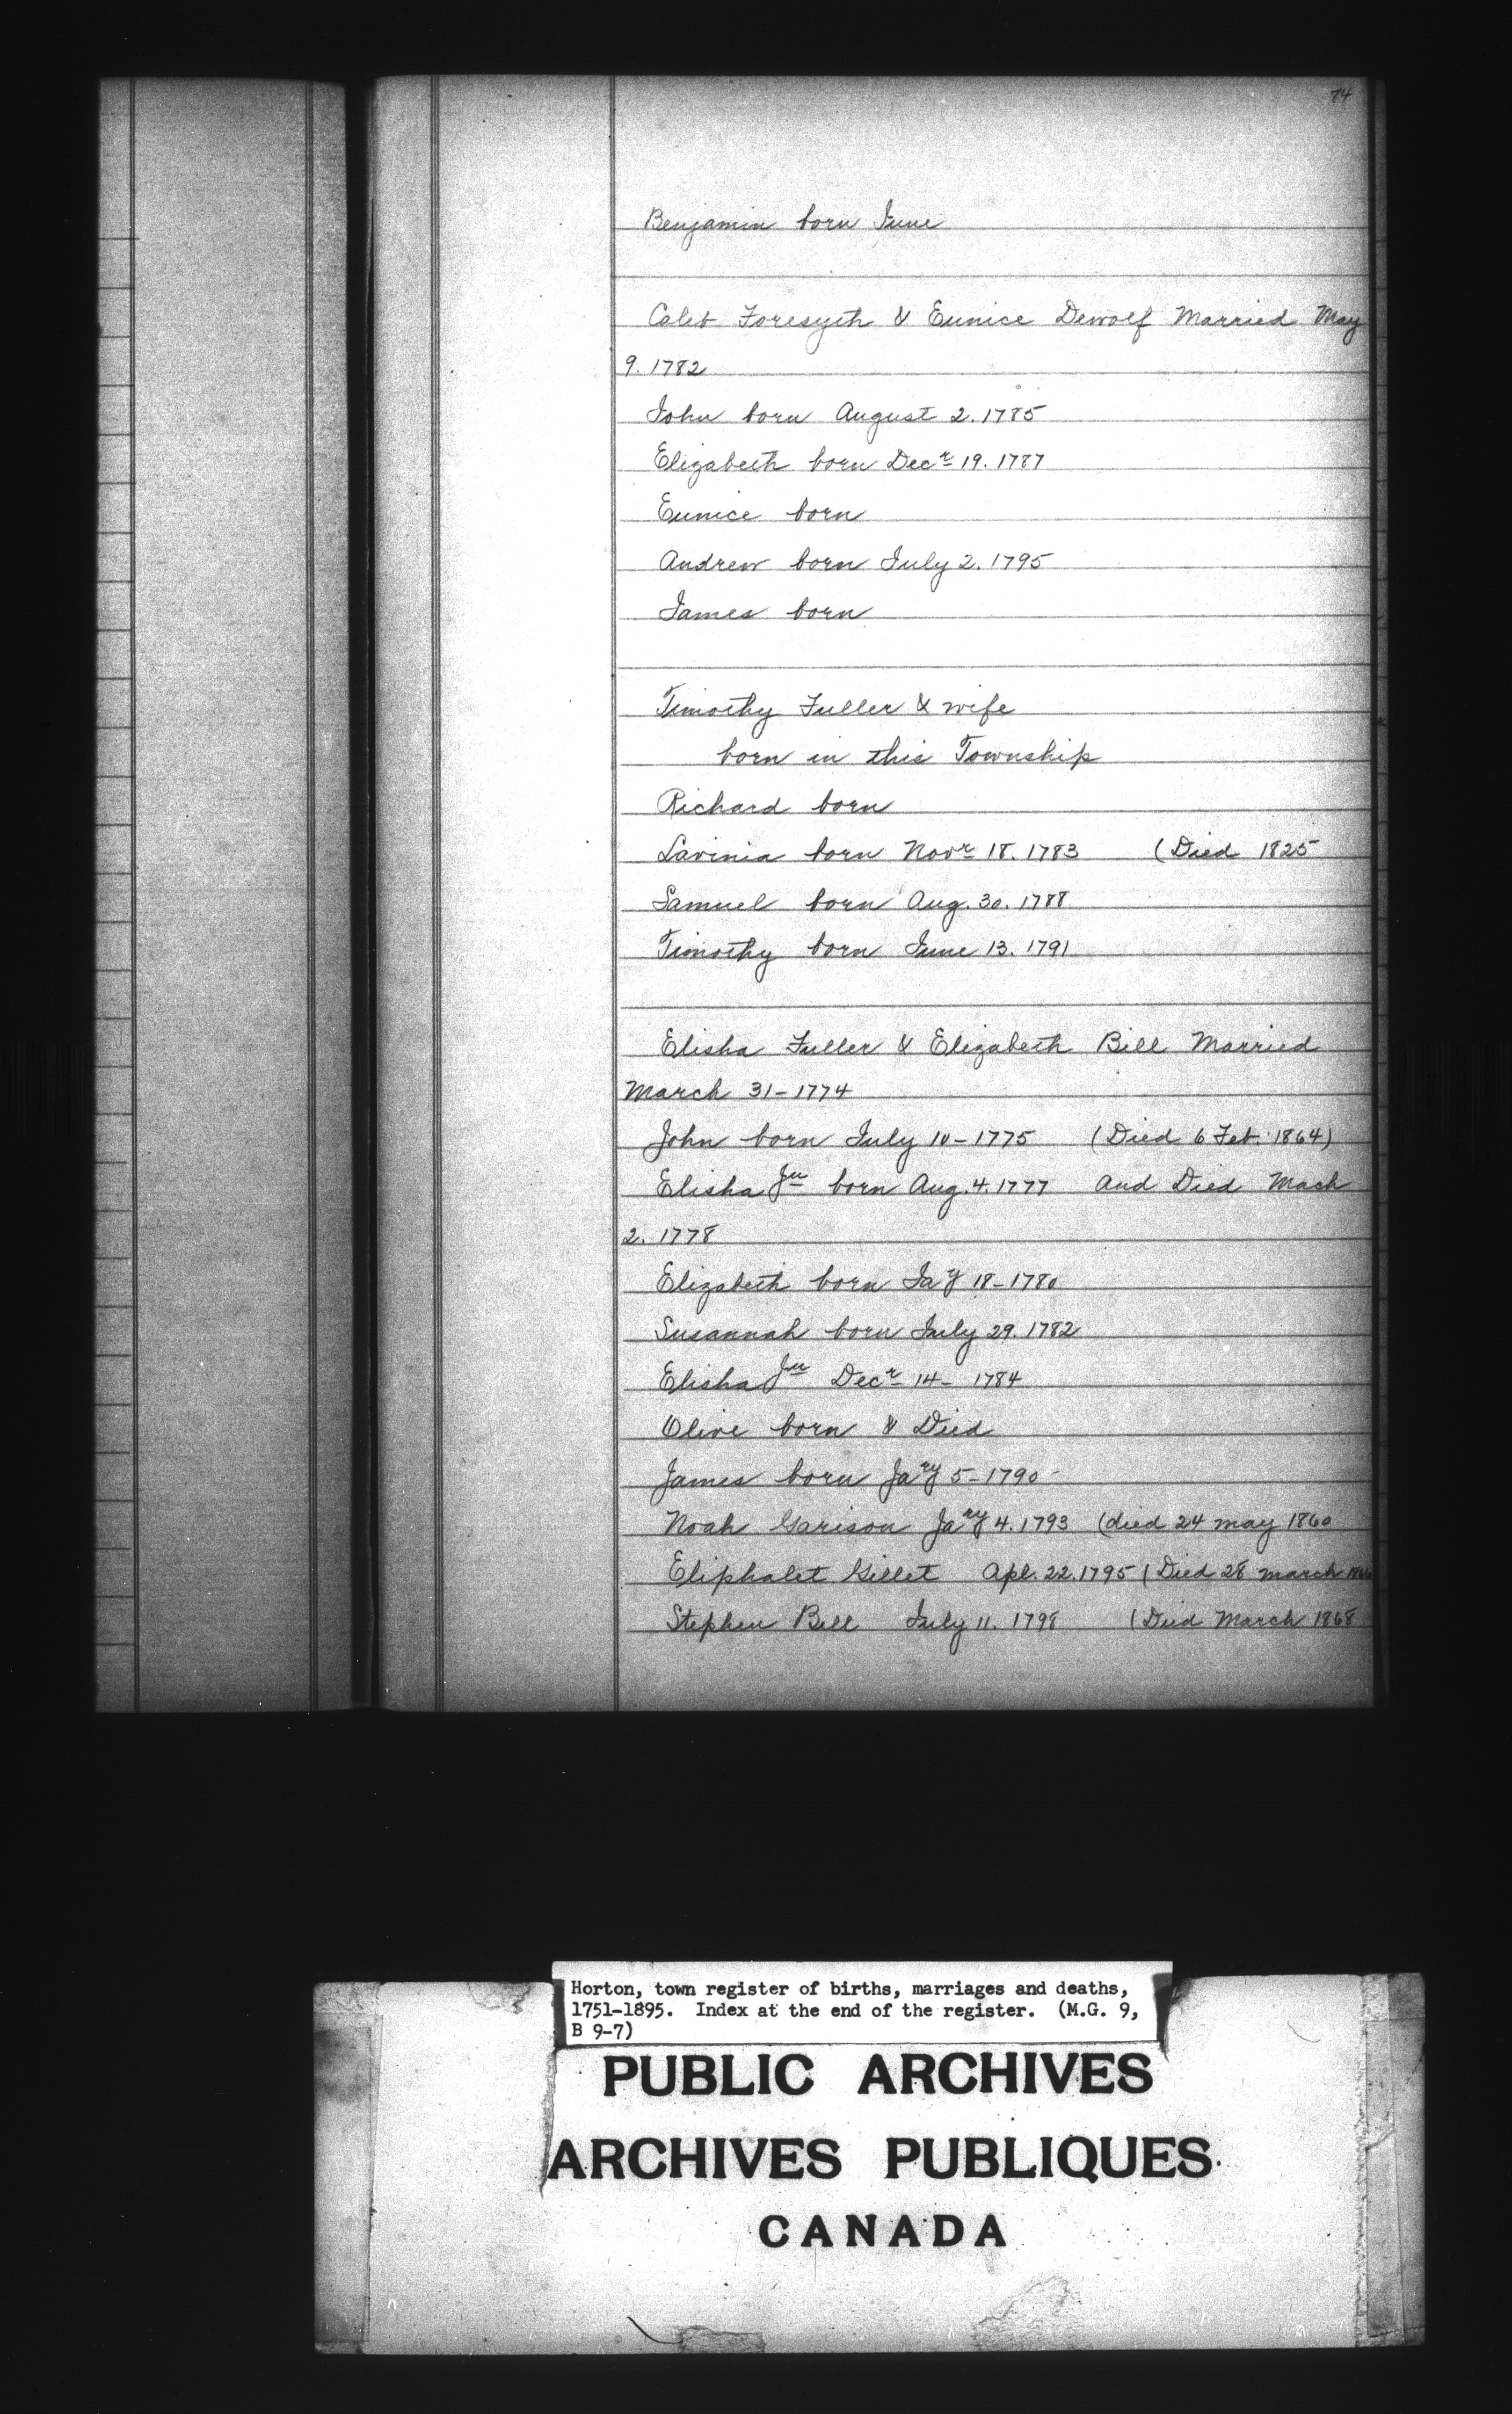 74
Benjamin born June
Caleb Foresyth & Eunice Dewolf Married May
9. 1782
John born August 2. 1785
Elizabeth born Decr 19. 1787
Eunice born
Andrew born July 2. 1795
James born
Timothy Fuller & wife
born in this Township
Richard born
Lavinia born Novr 18. 1783 (Died 1825
Samuel born Aug. 30. 1788
Timothy born June 13. 1791
Elisha Fuller & Elizabeth Bill Married
March 31-1774
John born July 10-1775 (Died 6 Feb. 1864)
Elisha Ju born Aug. 4. 1777 and Died Mach
2. 1778
Elizabeth born Jay 18-1780
Susannah born July 29. 1782
Elisha Ju Decr 14- 1784
Olive born & Died
James born Jary 5-1790-
Noah Garison Jary 4. 1793 (died 24 may 1860
Eliphalet Gillet Apl. 22. 1795 (Died 28 march
Stephen Bill July 11. 1798 (Died March 1868
Horton, town register of births, marriages and deaths,
1751-1895. Index at the end of the register. (M.G. 9,
B 9-7)
PUBLIC ARCHIVES
ARCHIVES PUBLIQUES
CANADA